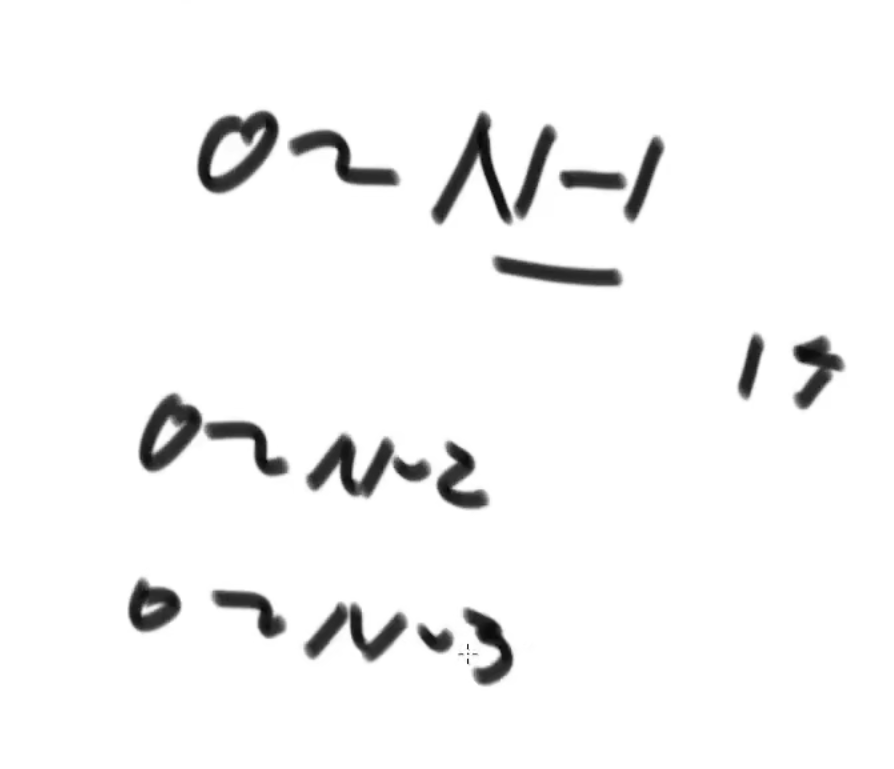 0~N-1
0~N-2
0~N-3